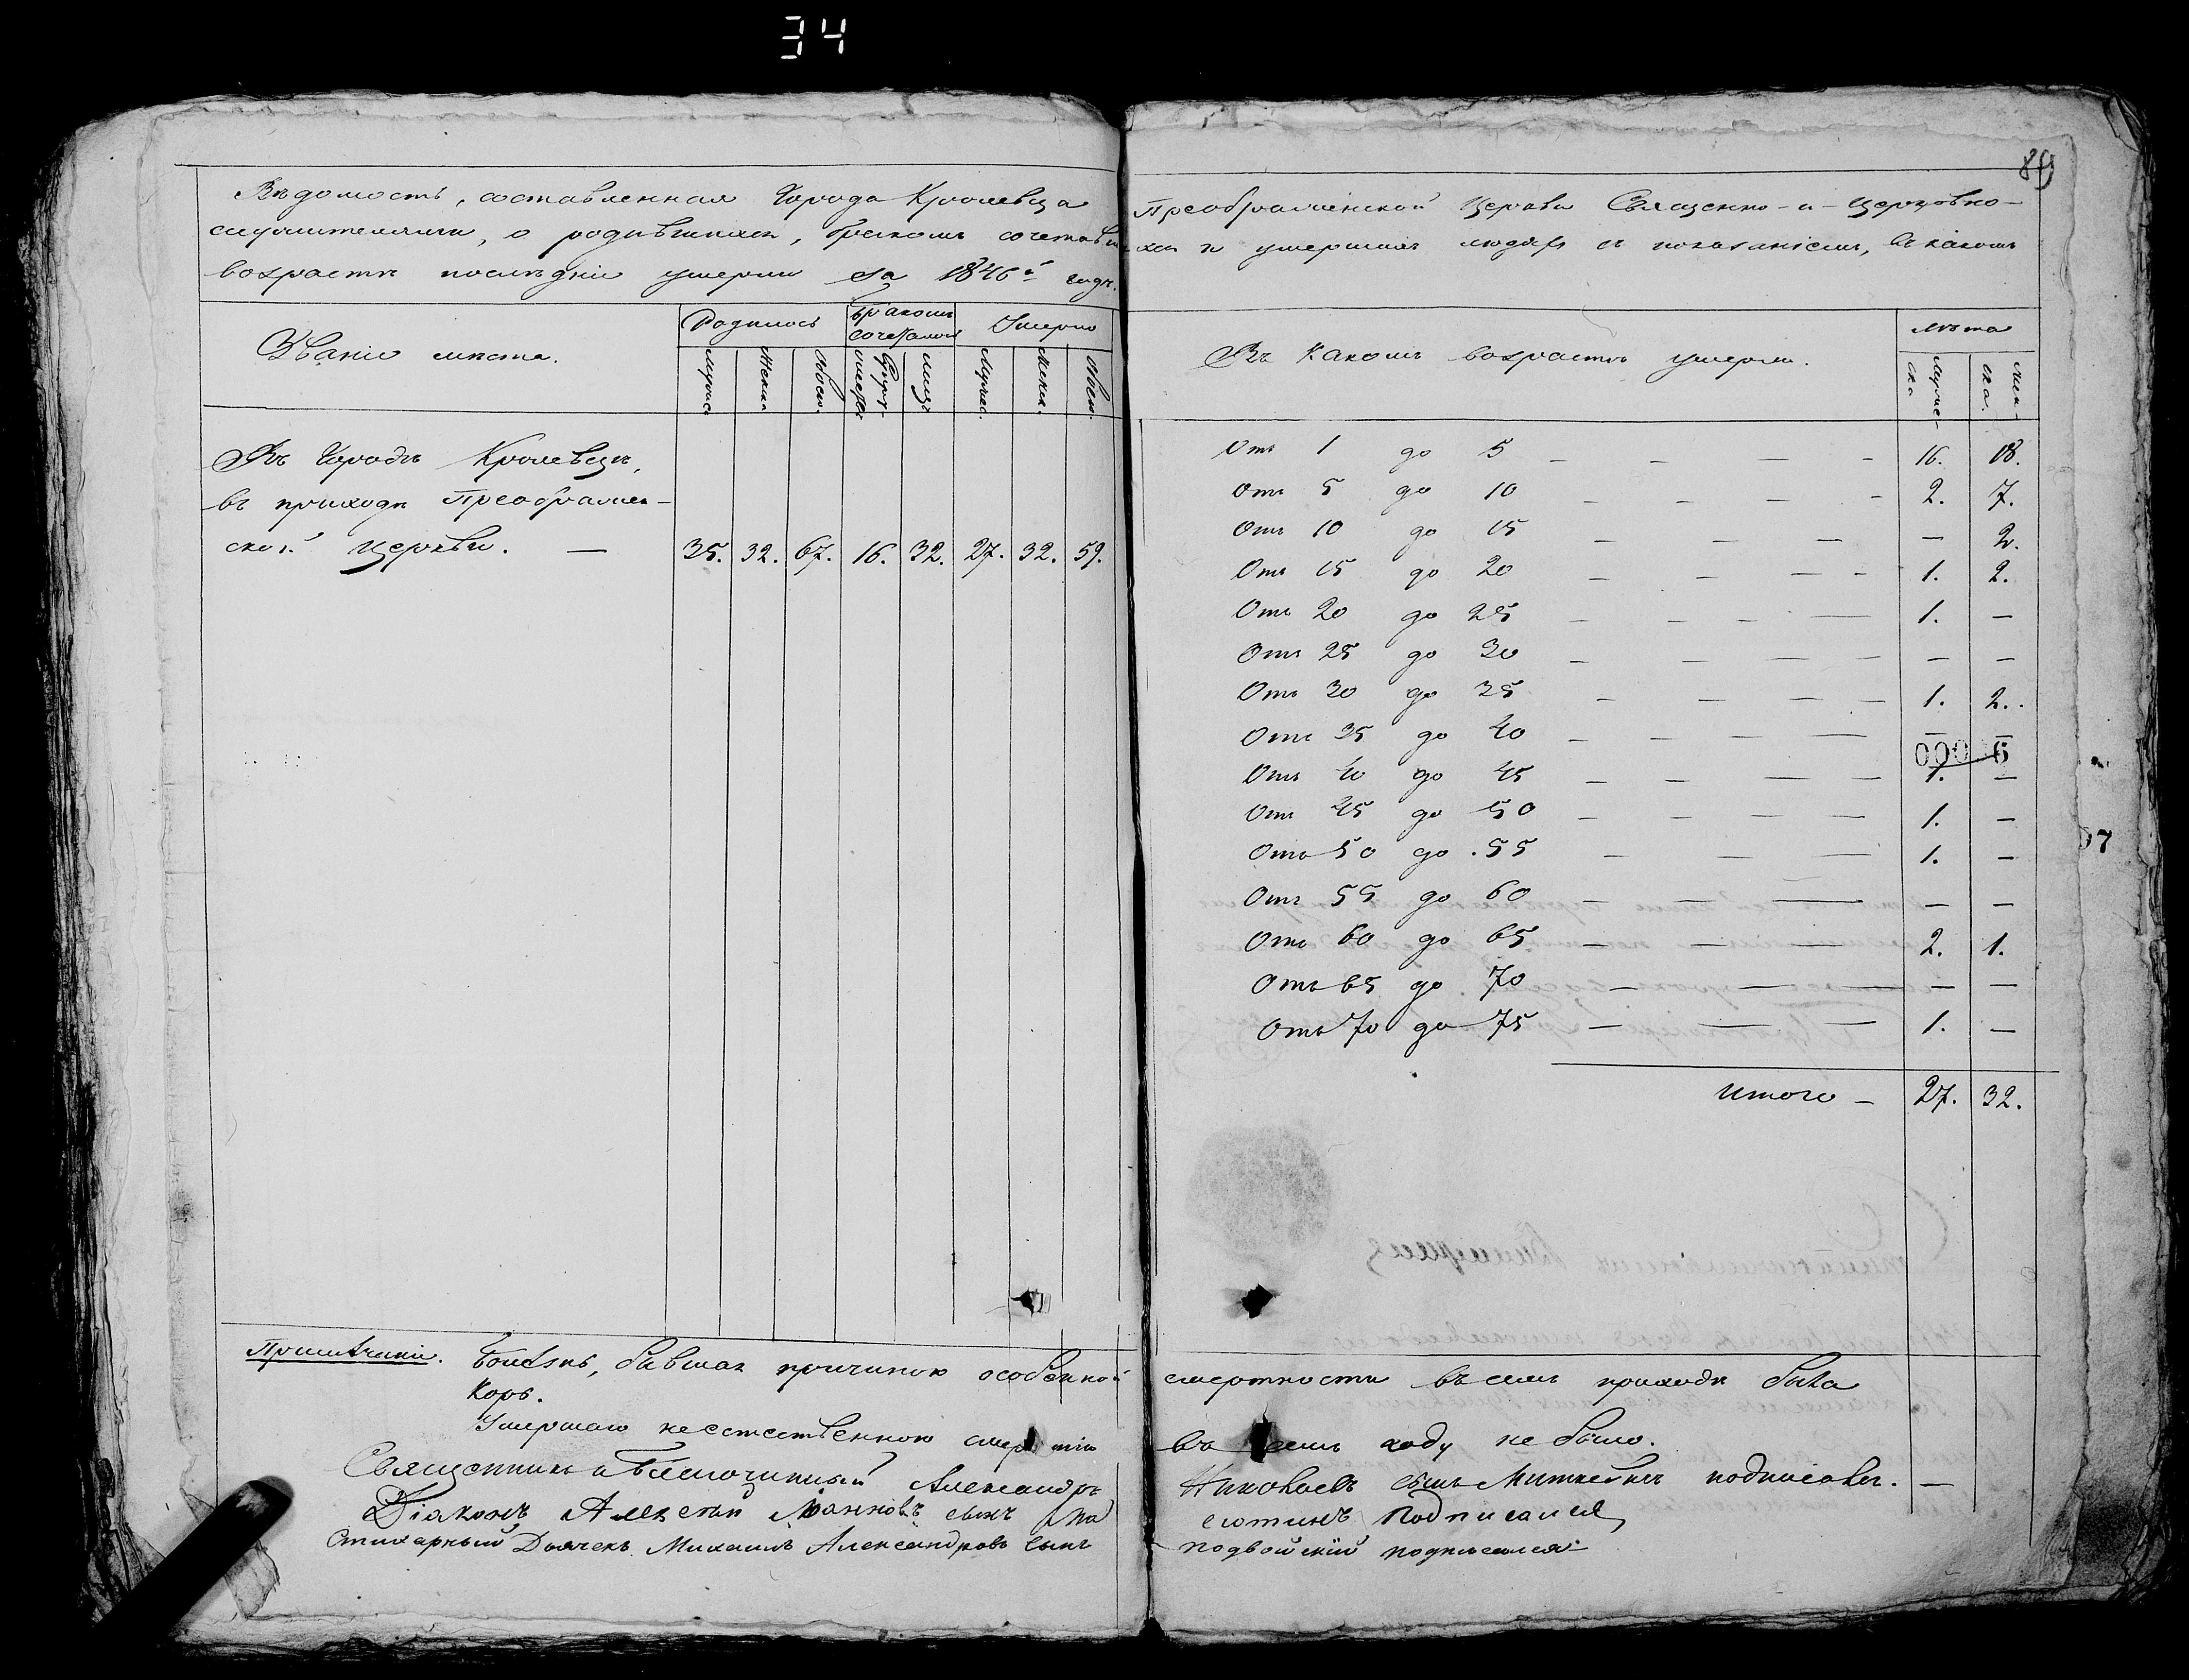 34
89
Вѣдомость, составленная Города Кролевца Преображенской Церкви Священно-и-церковно-
служителями, о родившихся, бракомъ сочетавшихся и умершихъ людяхъ съ показаніемъ, въ какомъ
возрастѣ послѣдніе умерли за 1846й годъ.
Званіе мѣста.
Родилось
Бракомъ сочеталось
Умерло
Мужес.
Женск.
Обоего.
лицъ
Мужес.
Женск.
Обоего.
Въ Городѣ Кролевцѣ,
въ приходѣ Преображен-
ской Церкви. — 35. 32. 67. 16. 32. 27. 32. 59.
Въ какомъ возрастѣ умерли.
лѣта
мужес-ка
жен-ска.
Отъ 1 до 5 — — — — 16. 18.
Отъ 5 до 10 — — — — 2. 7.
Отъ 10 до 15 — — — — 2.
Отъ 15 до 20 — — — — 1. 2.
Отъ 20 до 25 — — — — 1. —
Отъ 25 до 30 — — — — — —
Отъ 30 до 35 — — — — 1. 2.
Отъ 35 до 40 — — — — — —
Отъ 40 до 45 — — — — 1. —
Отъ 45 до 50 — — — — 1. —
Отъ 50 до 55 — — — 1. —
Отъ 55 до 60 — — — — —
Отъ 60 до 65 — — — 2. 1.
Отъ 65 до 70 — — — — —
Отъ 70 до 75 — — — 1. —
Итого — 27. 32.
Примѣчаніе. Болѣзнь, бывшая причиною особенной смертности въ семъ приходѣ была
Корь.
Умершаго неестественною смертію въ семъ году не было.
Священникъ и Благочинный Александръ Николаевъ сынъ подписалъ. —
Діаконъ Алексѣй Іоанновъ сынъ подписался
Стихарный Дьячекъ Михаилъ Александровъ сынъ Подвойскій подписался